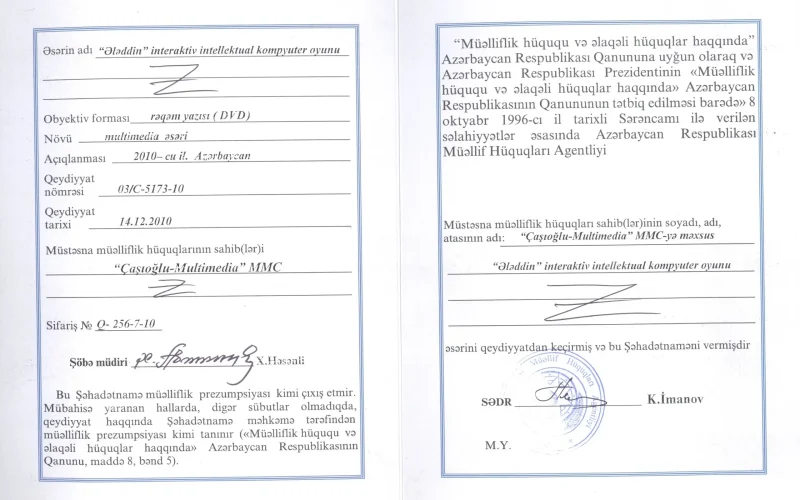 Əsərin adı "Ələddin" interaktiv intellektual kompyuter oyunu
Obyektiv forması rəqəm yazısı ( DVD)
Növü multimedia əsəri
Açıqlanması 2010– cu il. Azərbaycan
Qeydiyyat
nömrəsi 03/C-5173-10
Qeydiyyat
tarixi 14.12.2010
Müstəsna müəlliflik hüquqlarının sahib(lər)i
"Çaşıoğlu-Multimedia" MMC
Sifariş № Q- 256-7-10
Şöbə müdiri X.Həsənli
Bu Şəhadətnamə müəlliflik prezumpsiyası kimi çıxış etmir.
Mübahisə yaranan hallarda, digər sübutlar olmadıqda,
qeydiyyat haqqında Şəhadətnamə məhkəmə tərəfindən
müəlliflik prezumpsiyası kimi tanınır («Müəlliflik hüququ və
əlaqəli hüquqlar haqqında» Azərbaycan Respublikasının
Qanunu, maddə 8, bənd 5).
"Müəlliflik hüququ və əlaqəli hüquqlar haqqında"
Azərbaycan Respublikası Qanununa uyğun olaraq və
Azərbaycan Respublikası Prezidentinin «Müəlliflik
hüququ və əlaqəli hüquqlar haqqında» Azərbaycan
Respublikasının Qanununun tətbiq edilməsi barədə» 8
oktyabr 1996-cı il tarixli Sərəncamı ilə verilən
səlahiyyətlər əsasında Azərbaycan Respublikası
Müəllif Hüquqları Agentliyi
Müstəsna müəlliflik hüquqları sahib(lər)inin soyadı, adı,
atasının adı: "Çaşıoğlu-Multimedia" MMC-yə məxsus
"Ələddin" interaktiv intellektual kompyuter oyunu
əsərini qeydiyyatdan keçirmiş və bu Şəhadətnaməni vermişdir
Müəllif Hüquqları Agentliyi
SƏDR K.İmanov
M.Y.